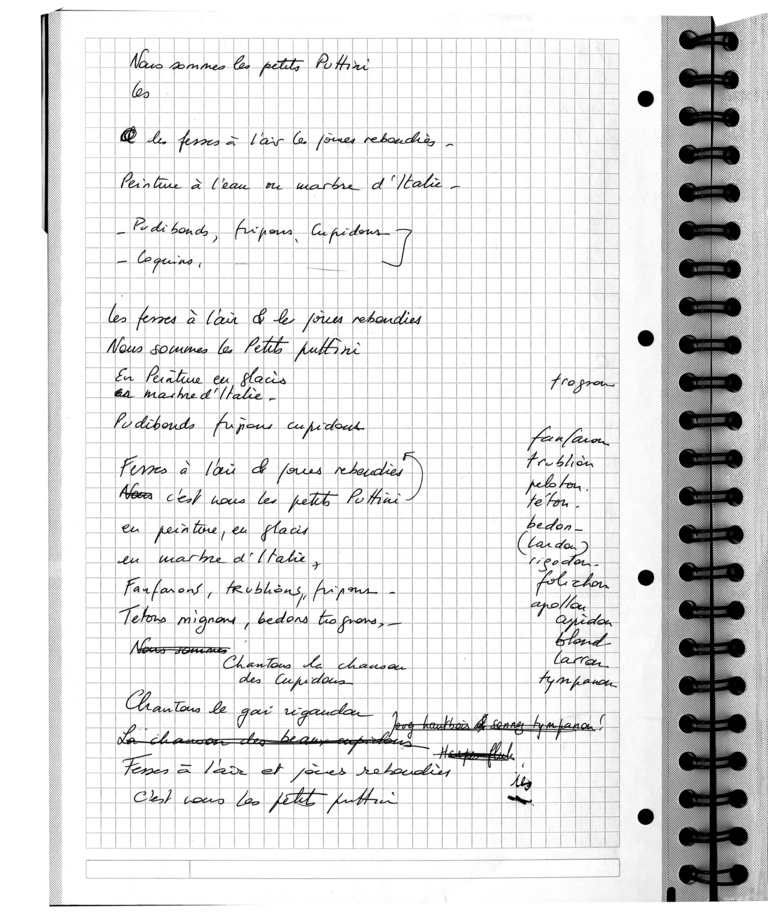 Nous sommes les petits Puttini
les
les fesses à l'air les joues rebondies -
Peinture à l'eau ou marbre d'Italie -
- Pudibonds, fripons, Cupidons
- Coquins,
Les fesses à l'air & les joues rebondies
Nous sommes les Petits puttini
En Peinture en glacis
en marbre d'Italie -
trognon
Pudibonds fripons cupidons
fanfaron
Fesses à l'air & joues rebondies
trublion
peloton
Nous c'est nous les petits Puttini
téton.
en peinture, en glacis
bedon -
(lardon)
en marbre d'Italie,
rigodon -
folichon
Fanfarons, trublions, fripons -
apollon
Tetons mignons, bedons trognons, -
cupidon
blond
Nous sommes
Chantons la chanson
larron
des Cupidons
tympanon
Chantons le gai rigaudon
Joyez hautbois & sonnez tympanon!
La chanson des beaux cupidons
Fesses à l'air et joues rebondies
les
C'est nous les petits puttini